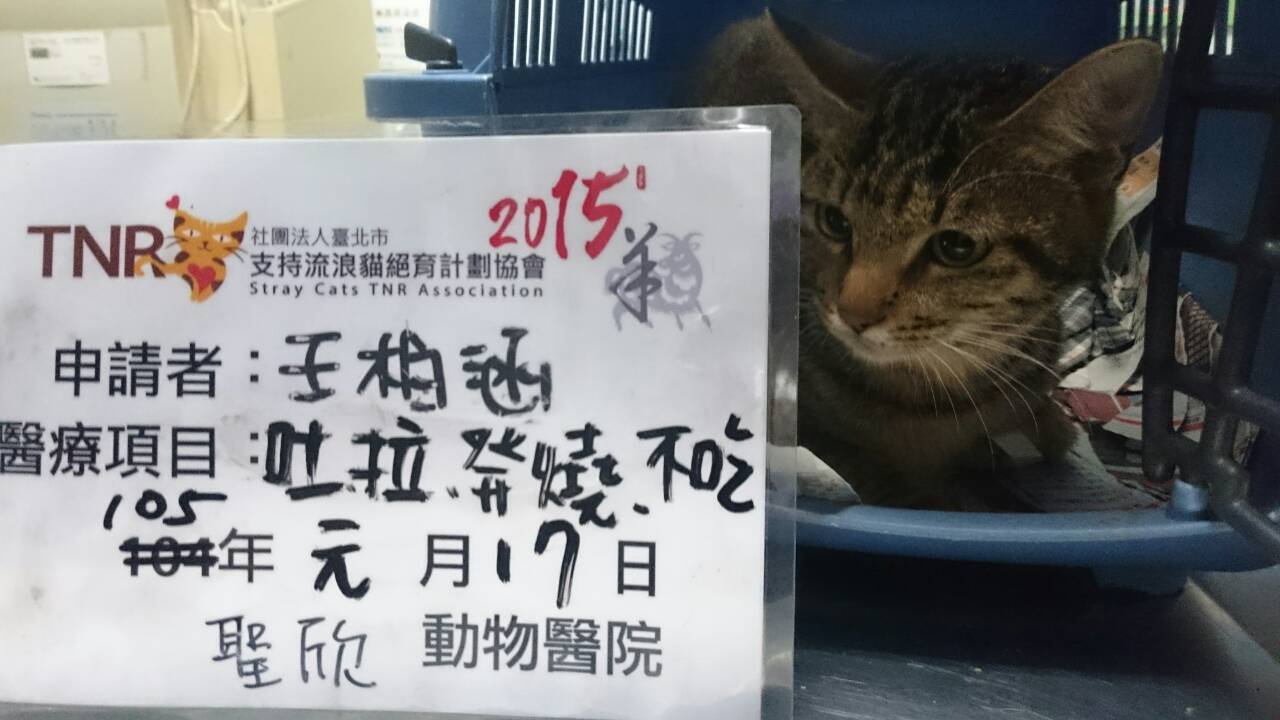 TNR 社團法人臺北市 2015
支持流浪貓絕育計劃協會 羊
Stray Cats TNR Association
申請者：王柏涵
醫療項目：吐.拉.發燒.不吃
105
104年 元 月 17 日
聖欣 動物醫院